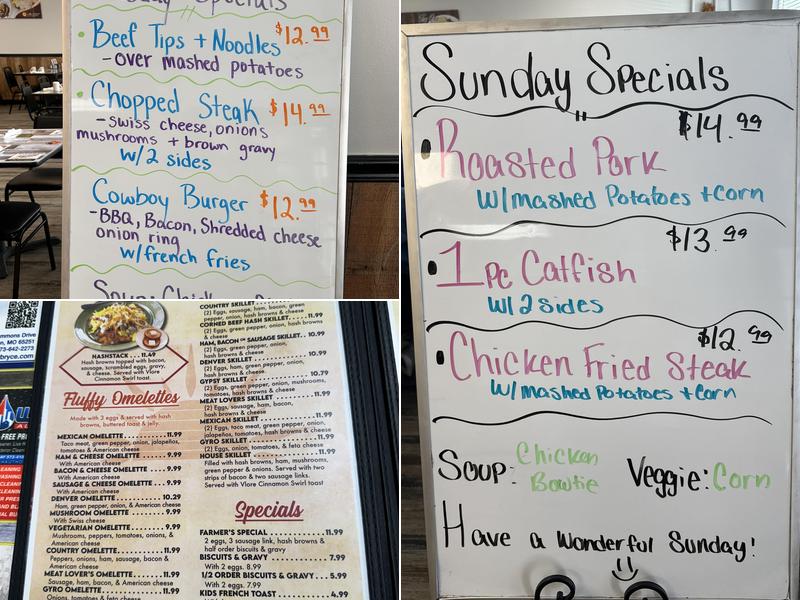 Specials
Beef Tips + Noodles $12.99
- over mashed potatoes
Chopped Steak $14.99
- swiss cheese, onions
mushrooms + brown gravy
w/2 sides
Cowboy Burger $12.99
- BBQ, Bacon, Shredded cheese
onion ring
w/french fries
Sunday Specials
$14.99
Roasted Pork
w/mashed Potatoes + Corn
$13.99
1pc Catfish
w/2 sides
$12.99
Chicken Fried Steak
w/mashed Potatoes + Corn
Soup: Chicken
Bowtie
Veggie: Corn
Have a Wonderful Sunday!
HASHSTACK . . . 11.49
Hash browns topped with bacon,
sausage, scrambled eggs, gravy,
& cheese. Served with Vlore
Cinnamon Swirl toast.
Fluffy Omelettes
Made with 3 eggs & served with hash
browns, buttered toast & jelly.
MEXICAN OMELETTE.....11.99
Taco meat, green pepper, onion, jalapeños,
tomatoes & American cheese
HAM & CHEESE OMELETTE .... 9.99
With American cheese
BACON & CHEESE OMELETTE .... 9.99
With American cheese
SAUSAGE & CHEESE OMELETTE .... 9.99
With American cheese
DENVER OMELETTE ........ 10.29
Ham, green pepper, onion, & American cheese
MUSHROOM OMELETTE .... 9.99
With Swiss cheese
VEGETARIAN OMELETTE ..... 9.99
Mushrooms, peppers, tomatoes, onions, &
American cheese
COUNTRY OMELETTE ....... 11.99
Peppers, onions, ham, sausage, bacon &
American cheese
MEAT LOVER'S OMELETTE.....11.99
Sausage, ham, bacon, & American cheese
GYRO OMELETTE ......... 11.99
Onions, tomatoes & feta cheese
COUNTRY SKILLET
(2) Eggs, sausage, ham, bacon, green
pepper, onion, hash browns & cheese
CORNED BEEF HASH SKILLET. . . 11.99
(2) Eggs, green pepper, onion, hash browns
& cheese
HAM, BACON OR SAUSAGE SKILLET. . 10.99
(2) Eggs, green pepper, onion,
hash browns & cheese
DENVER SKILLET ......... 10.99
(2) Eggs, ham, green pepper, onion,
hash browns & cheese.
GYPSY SKILLET ........ 10.79
(2) Eggs, green pepper, onion, mushrooms,
tomatoes, hash browns & cheese
MEAT LOVERS SKILLET ....... 11.99
(2) Eggs, sausage, ham, bacon,
hash browns & cheese
MEXICAN SKILLET ......... 11.99
(2) Eggs, taco meat, green pepper, onion,
jalapeños, tomatoes, hash browns & cheese
GYRO SKILLET .......... 11.99
(2) Eggs, onion, tomatoes & feta cheese
HOUSE SKILLET .......... 11.99
Filled with hash browns, ham, mushrooms,
green pepper & onions. Served with two
strips of bacon & two sausage links.
Served with Vlore Cinnamon Swirl toast.
Specials
FARMER'S SPECIAL ........ 11.99
2 eggs, 3 sausage link, hash browns &
half order biscuits & gravy
BISCUITS & GRAVY ......... 7.99
With 2 eggs. 8.99
1/2 ORDER BISCUITS & GRAVY . . . 5.99
With 2 eggs. 7.99
KIDS FRENCH TOAST ....... 4.99